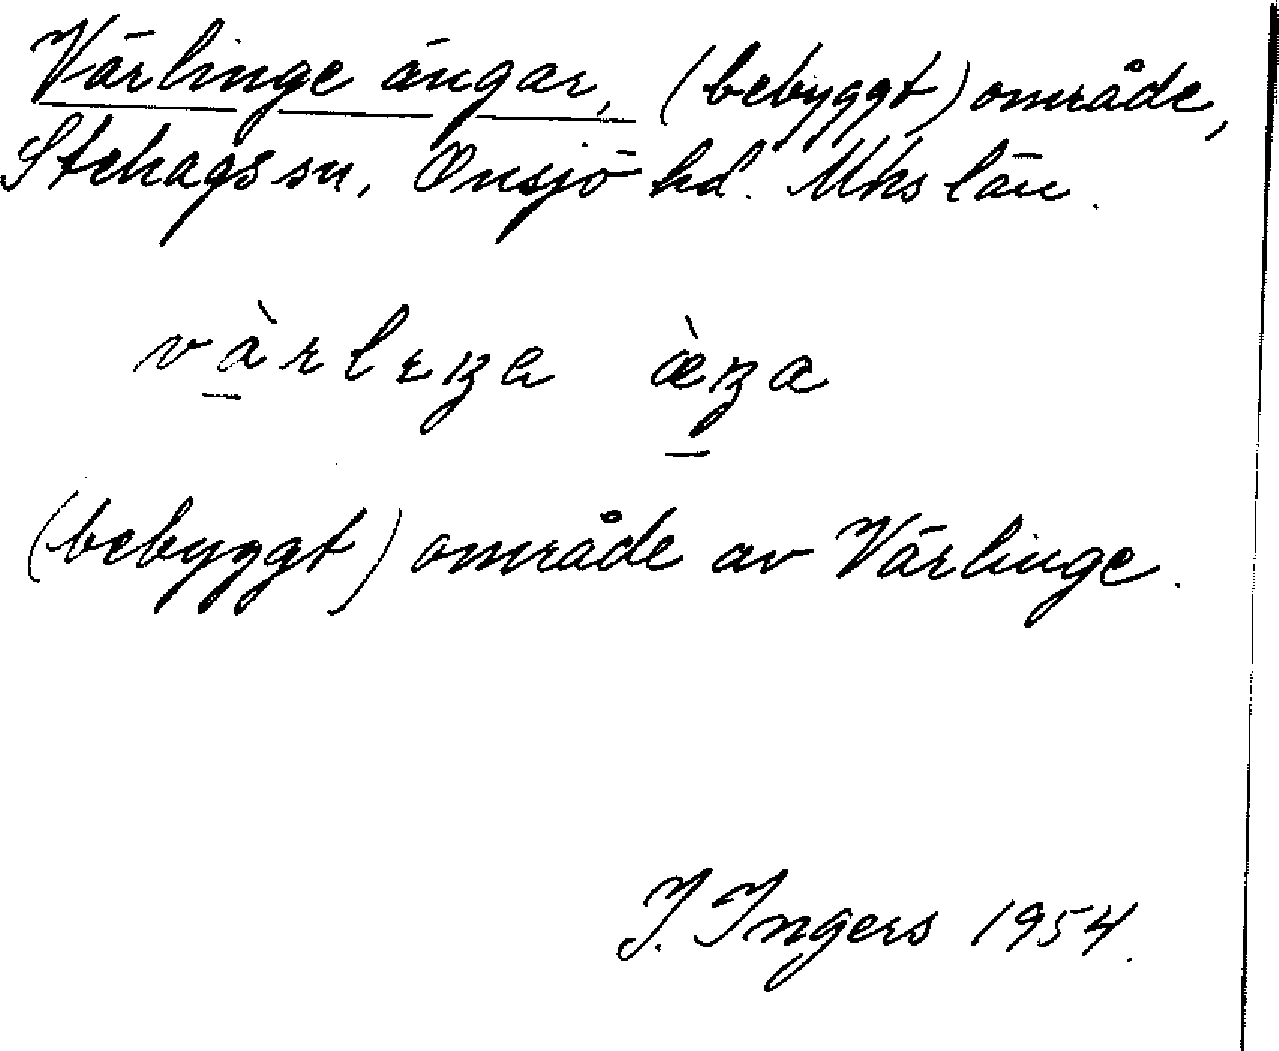 Värlinge ängar, (bebyggt) område,
Stehags sn, Onsjö hd. Mhs län.
vàrlɪŋa æ̀ŋa
(bebyggt) område av Värlinge.
J. Ingers 1954.